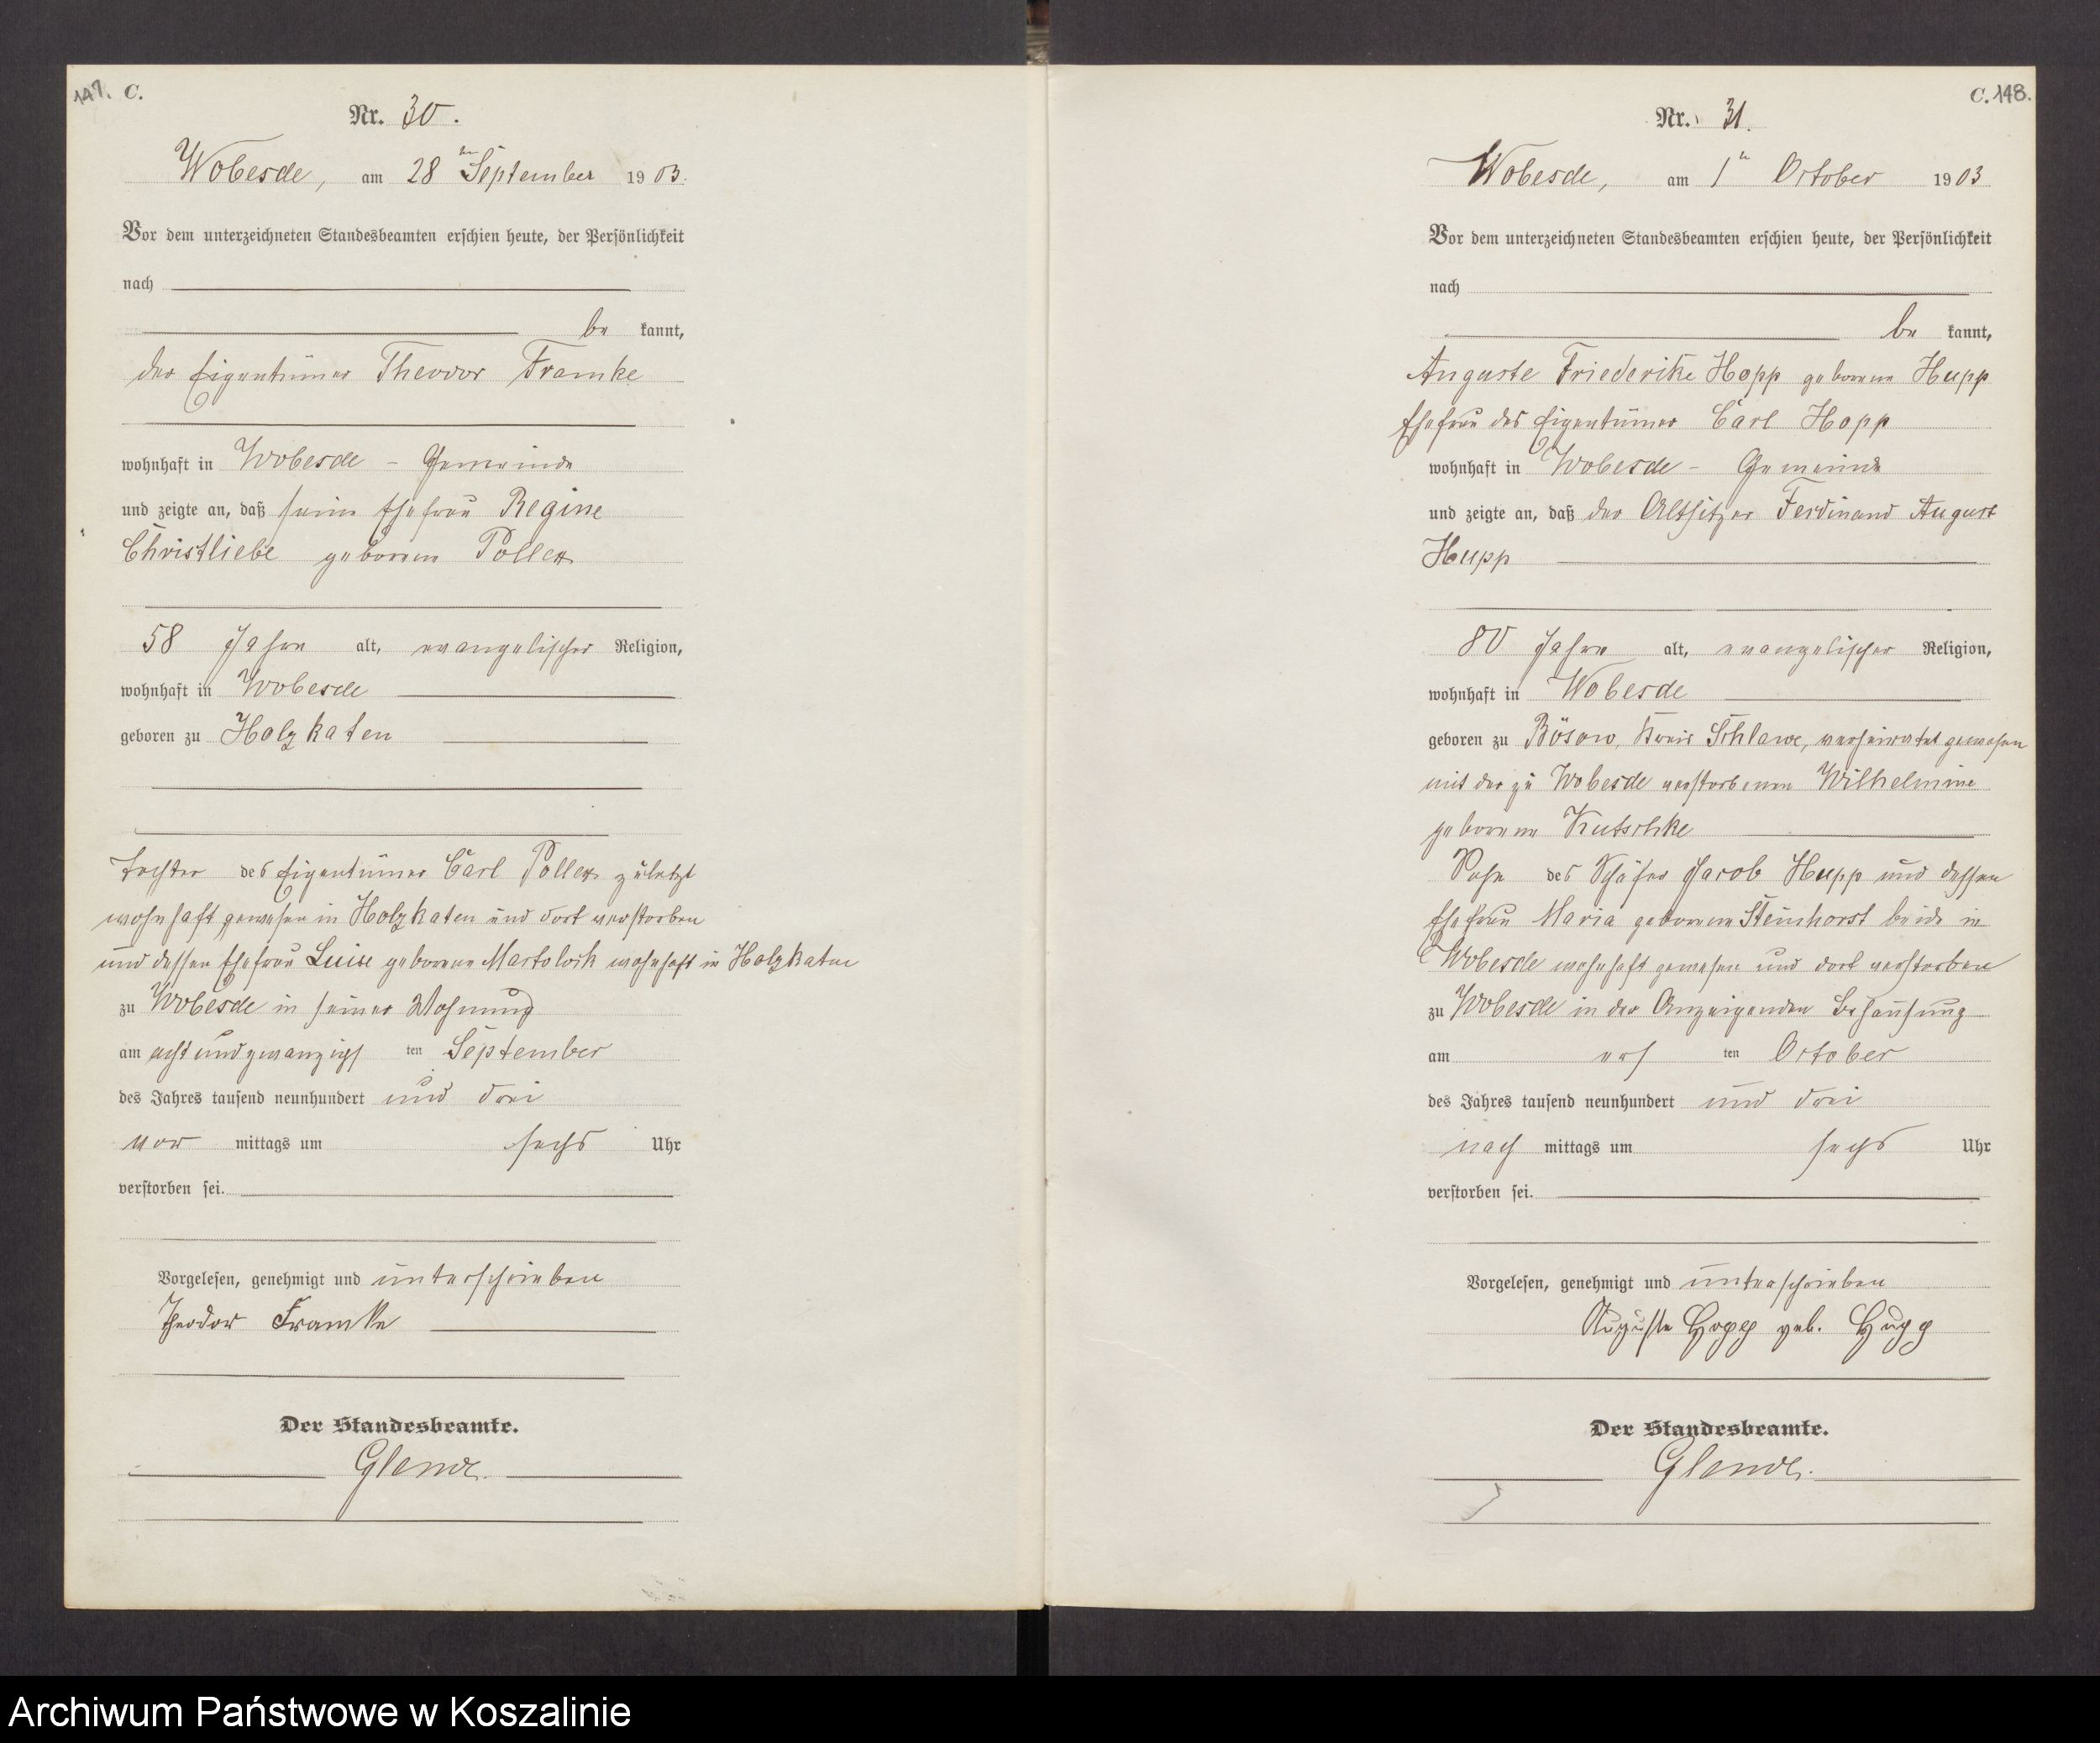 147. C.
Nr. 30.
Wobesde, am 28ten September 1903.
Vor dem unterzeichneten Standesbeamten erschien heute, der Persönlichkeit
nach
be kannt,
der Eigentümer Theodor Framke
wohnhaft in Wobesde - Gemeinde
und zeigte an, daß seine Ehefrau Regine
Christliebe geborene Pollex
58 Jahre alt, evangelischer Religion,
wohnhaft in Wobesde
geboren zu Holzkaten
Tochter des Eigentümer Carl Pollex zuletzt
wohnhaft gewesen in Holzkaten und dort verstorben
und dessen Ehefrau Luise geborene Martolock wohnhaft in Holzkaten
zu Wobesde in seiner Wohnung
am acht und zwanzigs ten September
des Jahres tausend neunhundert und drei
vor mittags um sechs Uhr
verstorben sei.
Vorgelesen, genehmigt und unterschrieben
Theodor Framke
Der Standesbeamte.
C. 148.
Nr. 31.
Wobesde, am 1ten October 1903
Vor dem unterzeichneten Standesbeamten erschien heute, der Persönlichkeit
nach
be kannt,
Auguste Friederike Hopp geborene Hupp
Ehefrau des Eigentümer Carl Hopp
wohnhaft in Wobesde - Gemeinde
und zeigte an, daß der Altsitzer Ferdinand August
Hupp
80 Jahre alt, evangelischer Religion,
wohnhaft in Wobesde
geboren zu Bösow, Kreis Schlawe, verheiratet gewesen
mit der zu Wobesde verstorbenen Wilhelmine
geborene Kutschke
Sohn des Schäfer Jacob Hupp und dessen
Ehefrau Maria geborene Steinhorst beide in
Wobesde wohnhaft gewesen und dort verstorben
zu Wobesde in der Anzeigenden Behausung
am ers ten October
des Jahres tausend neunhundert und drei
nach mittags um sechs Uhr
verstorben sei.
Vorgelesen, genehmigt und unterschrieben
Auguste Hopp geb. Hupp
Der Standesbeamte.
Archiwum Państwowe w Koszalinie